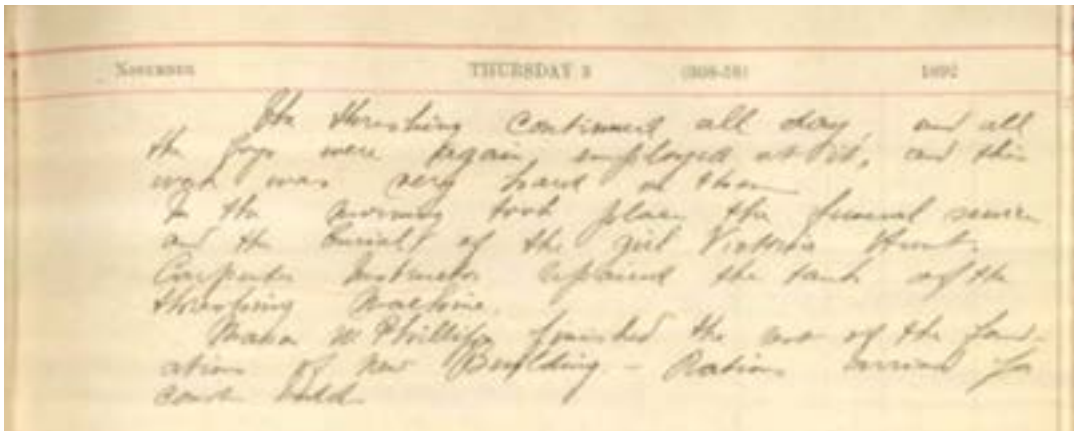 November THURSDAY 3 (308-58) 1892
The threshing continued all day, and all
the boys were again employed at it, and this
work was very hard on them
In the morning took place the funeral service
and the burial of the girl Victoria Hunt.
Carpenter Instructor repaired the tank of the
threshing Machine.
Mason W Phillips finished the work of the foun-
ations of new Building - Rations arrived for